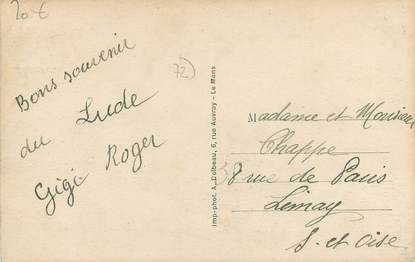 20 €
72
Bons souvenir
du Lude
Gigi Roger
imp-phot. A. Dolbeau, 6, rue Auvray - Le Mans
Madame et Monsieur
Chappe
38 rue de Paris
Limay
S. et Oise